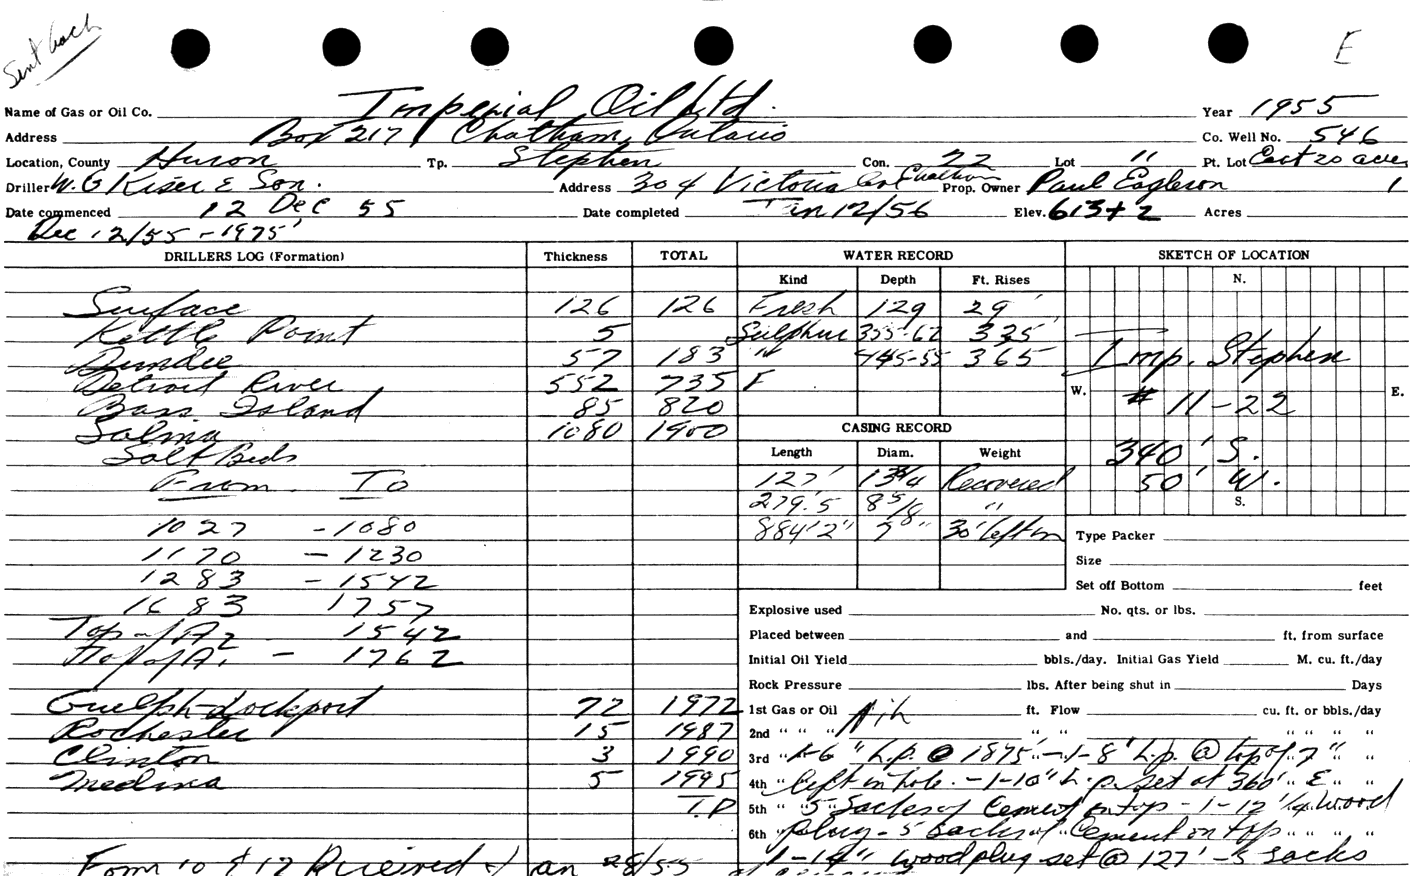 Sent back
E
Name of Gas or Oil Co. Imperial Oil Ltd. Year 1955
Address Box 217 Chatham, Ontario Co. Well No. 546
Location, County Huron Tp. Stephen Con. 22 Lot 11 Pt. Lot East 20 acres
Driller W.G Kiser & Son. Address 304 Victoria Chatham Prop. Owner Paul Eagleson 1
Date commenced 12 Dec 55 Date completed Jan 12/56 Elev. 613+2 Acres
Dec 12/55 - 1975'
DRILLERS LOG (Formation) Thickness TOTAL WATER RECORD SKETCH OF LOCATION
Kind Depth Ft. Rises N.
Surface 126 126 Fresh 129 29'
Kettle Point 5 Sulphur 355-62 335'
Dundee 57 183 " 445-55 365 Imp. Stephen
Detroit River 552 735 F
W. E.
Bass Island 85 820 # 11-22
Salina 1080 1900 CASING RECORD
Salt Beds Length Diam. Weight 340' S.
From To 127' 13 3/4 Recovered 50' W.
279.5 8 5/8 " S.
1027 - 1080 884'2" 7" 30' left in Type Packer
1170 - 1230 Size
1283 - 1542 Set off Bottom feet
1683 1757 Explosive used No. qts. or lbs.
Top of A2 - 1542 Placed between and ft. from surface
Top of A1 - 1762 Initial Oil Yield bbls./day. Initial Gas Yield M. cu. ft./day
Rock Pressure lbs. After being shut in Days
Guelph-Lockport 72 1972 1st Gas or Oil Nil ft. Flow cu. ft. or bbls./day
Rochester 15 1987 2nd " " " " " " " " "
Clinton 3 1990 3rd " 1-6" h.p. @ 1875' - 1-8" h.p. @ top of 7" "
Medina 5 1995 4th " left in hole. - 1-10" h.p. set at 360' " "
T.D 5th " 5 Sacks of Cement on top - 1-12 1/4 wood
6th plug - 5 Sacks of Cement on top " " "
Form 10 & 12 Received Jan 28/55 1-14" wood plug set @ 127' - 5 Sacks